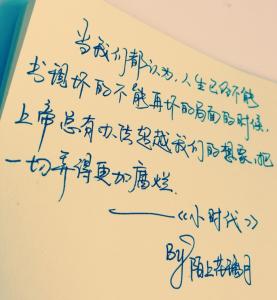 当我们都认为,人生已经不能
出现坏的不能再坏的局面的时候,
上帝总有办法超越我们的想象,把
一切弄得更加腐烂.
——《小时代》
By 陌上花满月